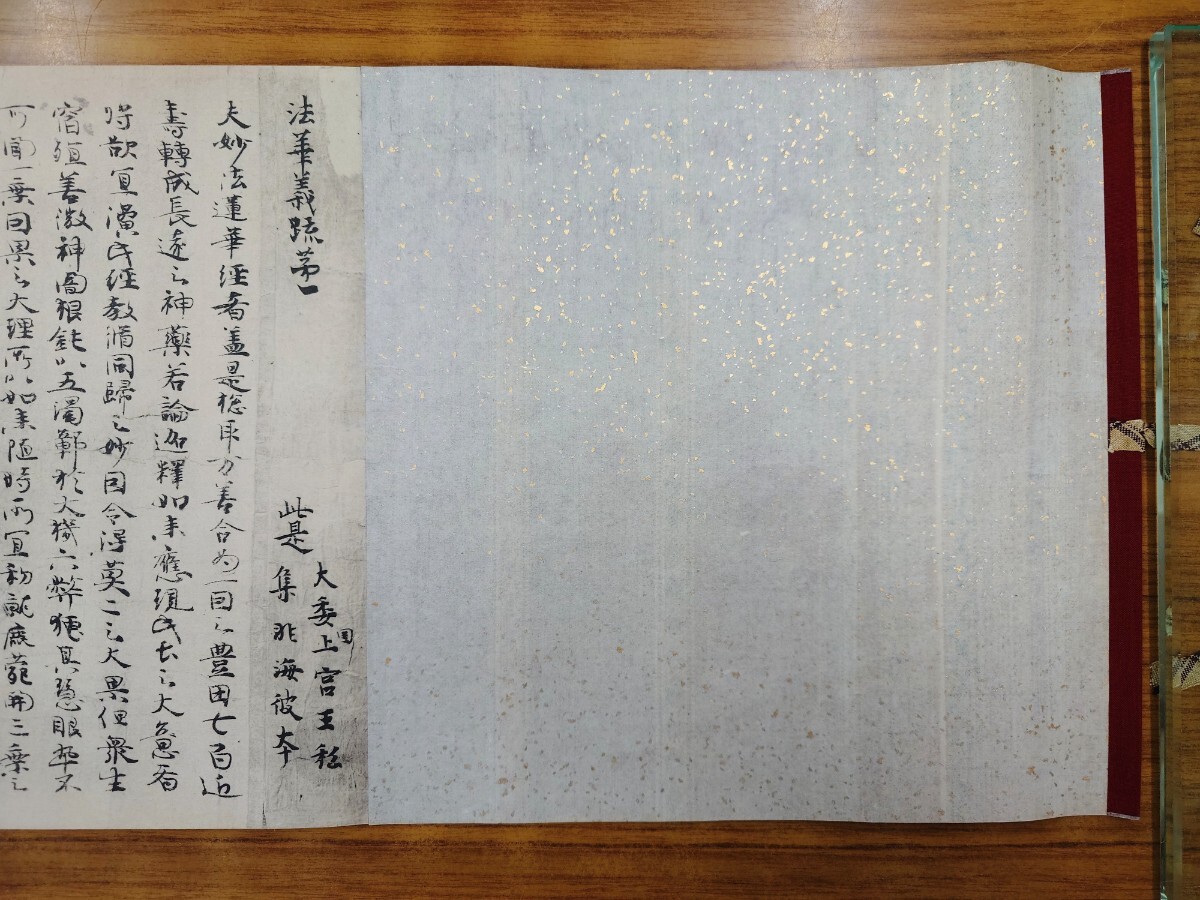 法華義疏苐一
此是
大委国上宮王私
集非海彼本
夫妙法蓮華經者盖是惣取万善合為一因之豊田七百近
壽轉成長遠之神藥若論迦釋如来應現此土之大意者
将欲宜演此經教脩同歸之妙因令得莫二之大果但衆生
宿殖善微神闇根鈍以五濁鄣於大機六弊掩其慧眼卒不
可聞一乗因果之大理所以如来随時所宜初就鹿菀開三乗之